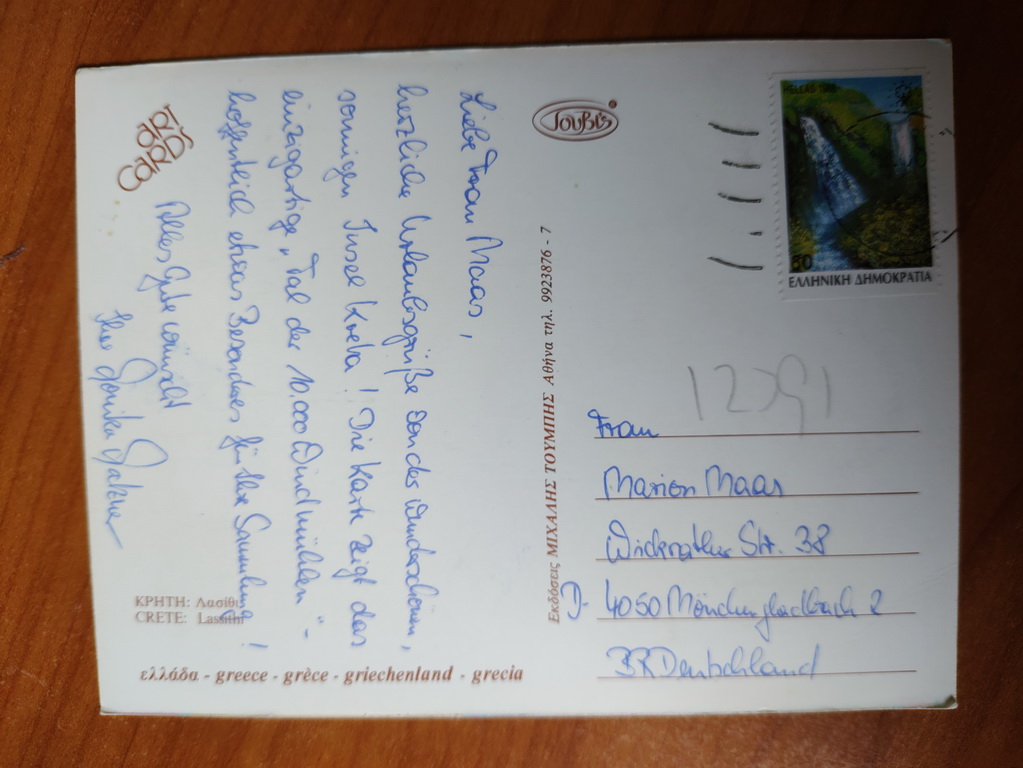 Liebe Frau Maas,
herzliche Urlaubsgrüße von der wunderschönen,
sonnigen Insel Kreta! Die Karte zeigt das
einzigartige „Tal der 10.000 Windmühlen" -
hoffentlich etwas Besonderes für Ihre Sammlung!
Alles Gute wünscht
Ihre
art
cards
ΚΡΗΤΗ: Λασίθι
CRETE: Lassithi
ελλάδα - greece - grèce - griechenland - grecia
Εκδόσεις ΜΙΧΑΛΗΣ ΤΟΥΜΠΗΣ Αθήνα τηλ. 9923876 - 7
Τουβίς
HELLAS
50
ΕΛΛΗΝΙΚΗ ΔΗΜΟΚΡΑΤΙΑ
Frau
Marion Maas
Wickrather Str. 38
D- 4050 Mönchengladbach 2
BRDeutschland